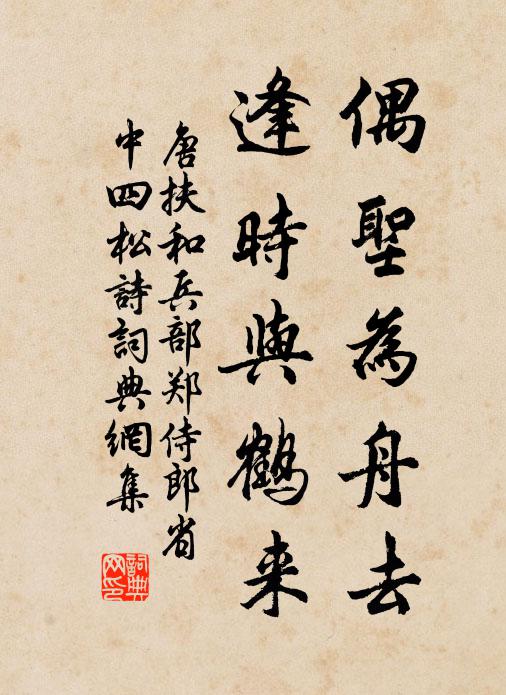 偶聖為舟去
逢時與鶴来
唐扶和兵部郑侍郎省
中四松詩詞典網集
詞典
网印